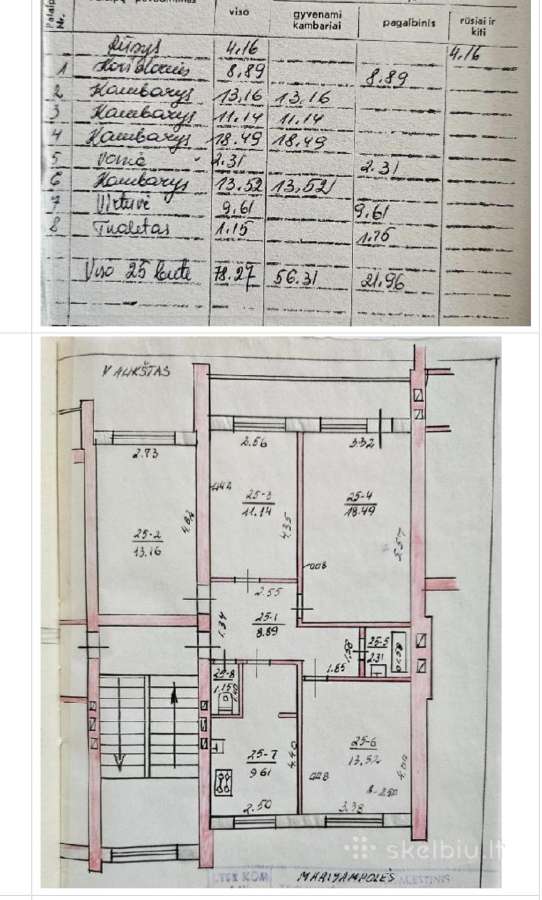 viso
gyvenami kambariai
pagalbinis
rūsiai ir kiti
Palaip. Nr.
Rūsys 4.16 4.16
1 Koridorius 8.89 8.89
2 Kambarys 13.16 13.16
3 Kambarys 11.14 11.14
4 Kambarys 18.49 18.49
5 Vonia 2.31 2.31
6 Kambarys 13.52 13.52
7 Virtuvė 9.61 9.61
8 Tualetas 1.15 1.15
Viso 25 bute 78.27 56.31 21.96
V AUKŠTAS
2.73
2.56
3.32
25-2
13.16
4.82
25-3
11.14
4.35
25-4
18.49
5.57
2.55
25-1
8.89
1.34
1.58
1.85
25-5
2.31
25-8
1.15
25-7
9.61
4.40
2.50
25-6
13.52
4.00
h-2.50
3.38
skelbiu.lt